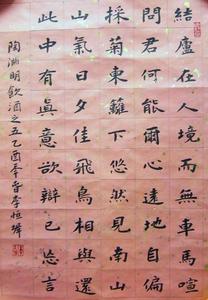 結廬在人境而無車馬喧
問君何能爾心遠地自偏
採菊東籬下悠然見南山
山氣日夕佳飛鳥相與還
此中有眞意欲辯已忘言
陶淵明飲酒之五乙酉年春李恒